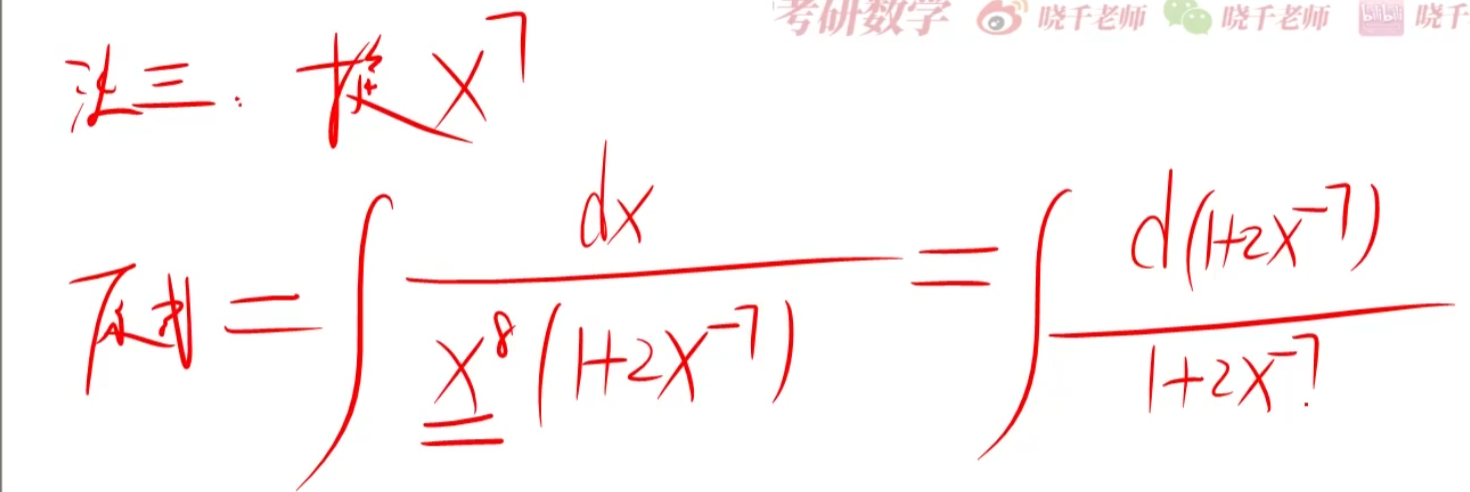 考研数学 晓千老师 晓千老师 bilibili 晓千
法三: 提 x⁷
原式 = ∫ dx / x⁸(1+2x⁻⁷) = ∫ d(1+2x⁻⁷) / 1+2x⁻⁷